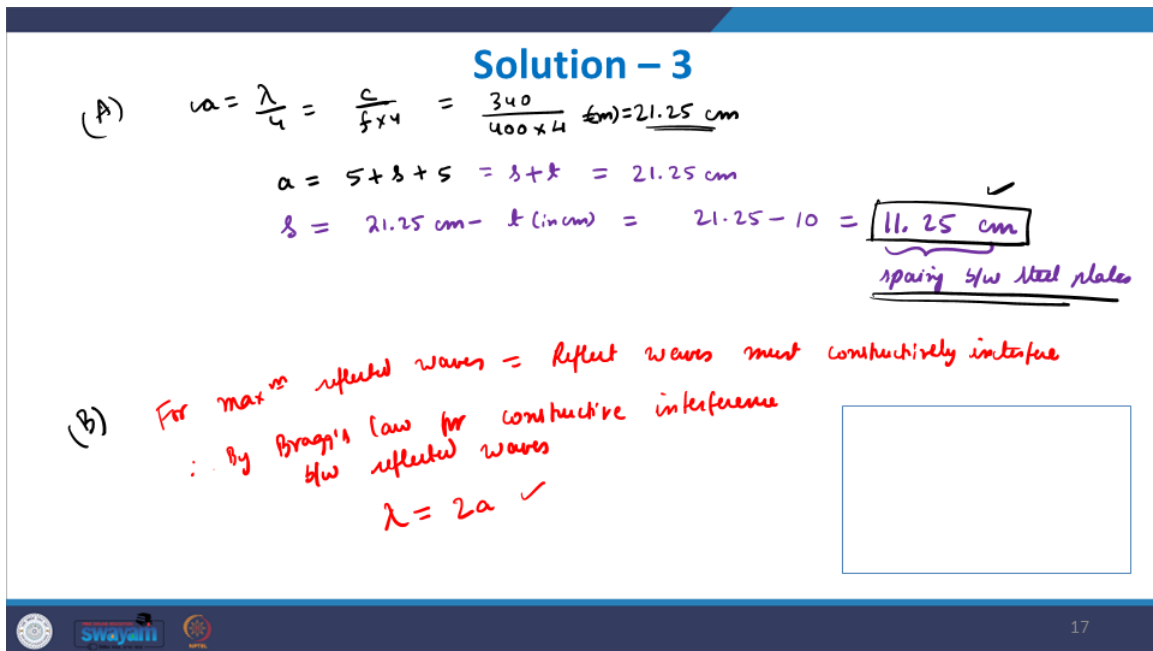 Solution – 3
(A) a = λ/4 = c/(f×4) = 340/(400×4) (m) = 21.25 cm
a = 5+s+5 = s+t = 21.25 cm
s = 21.25 cm - t (in cm) = 21.25 - 10 = 11.25 cm ✓
spacing b/w steel plates
(B) For max^m reflected waves = Reflect waves must constructively interfere
∴ By Bragg's law for constructive interference
b/w reflected waves
λ = 2a ✓
swayam
17